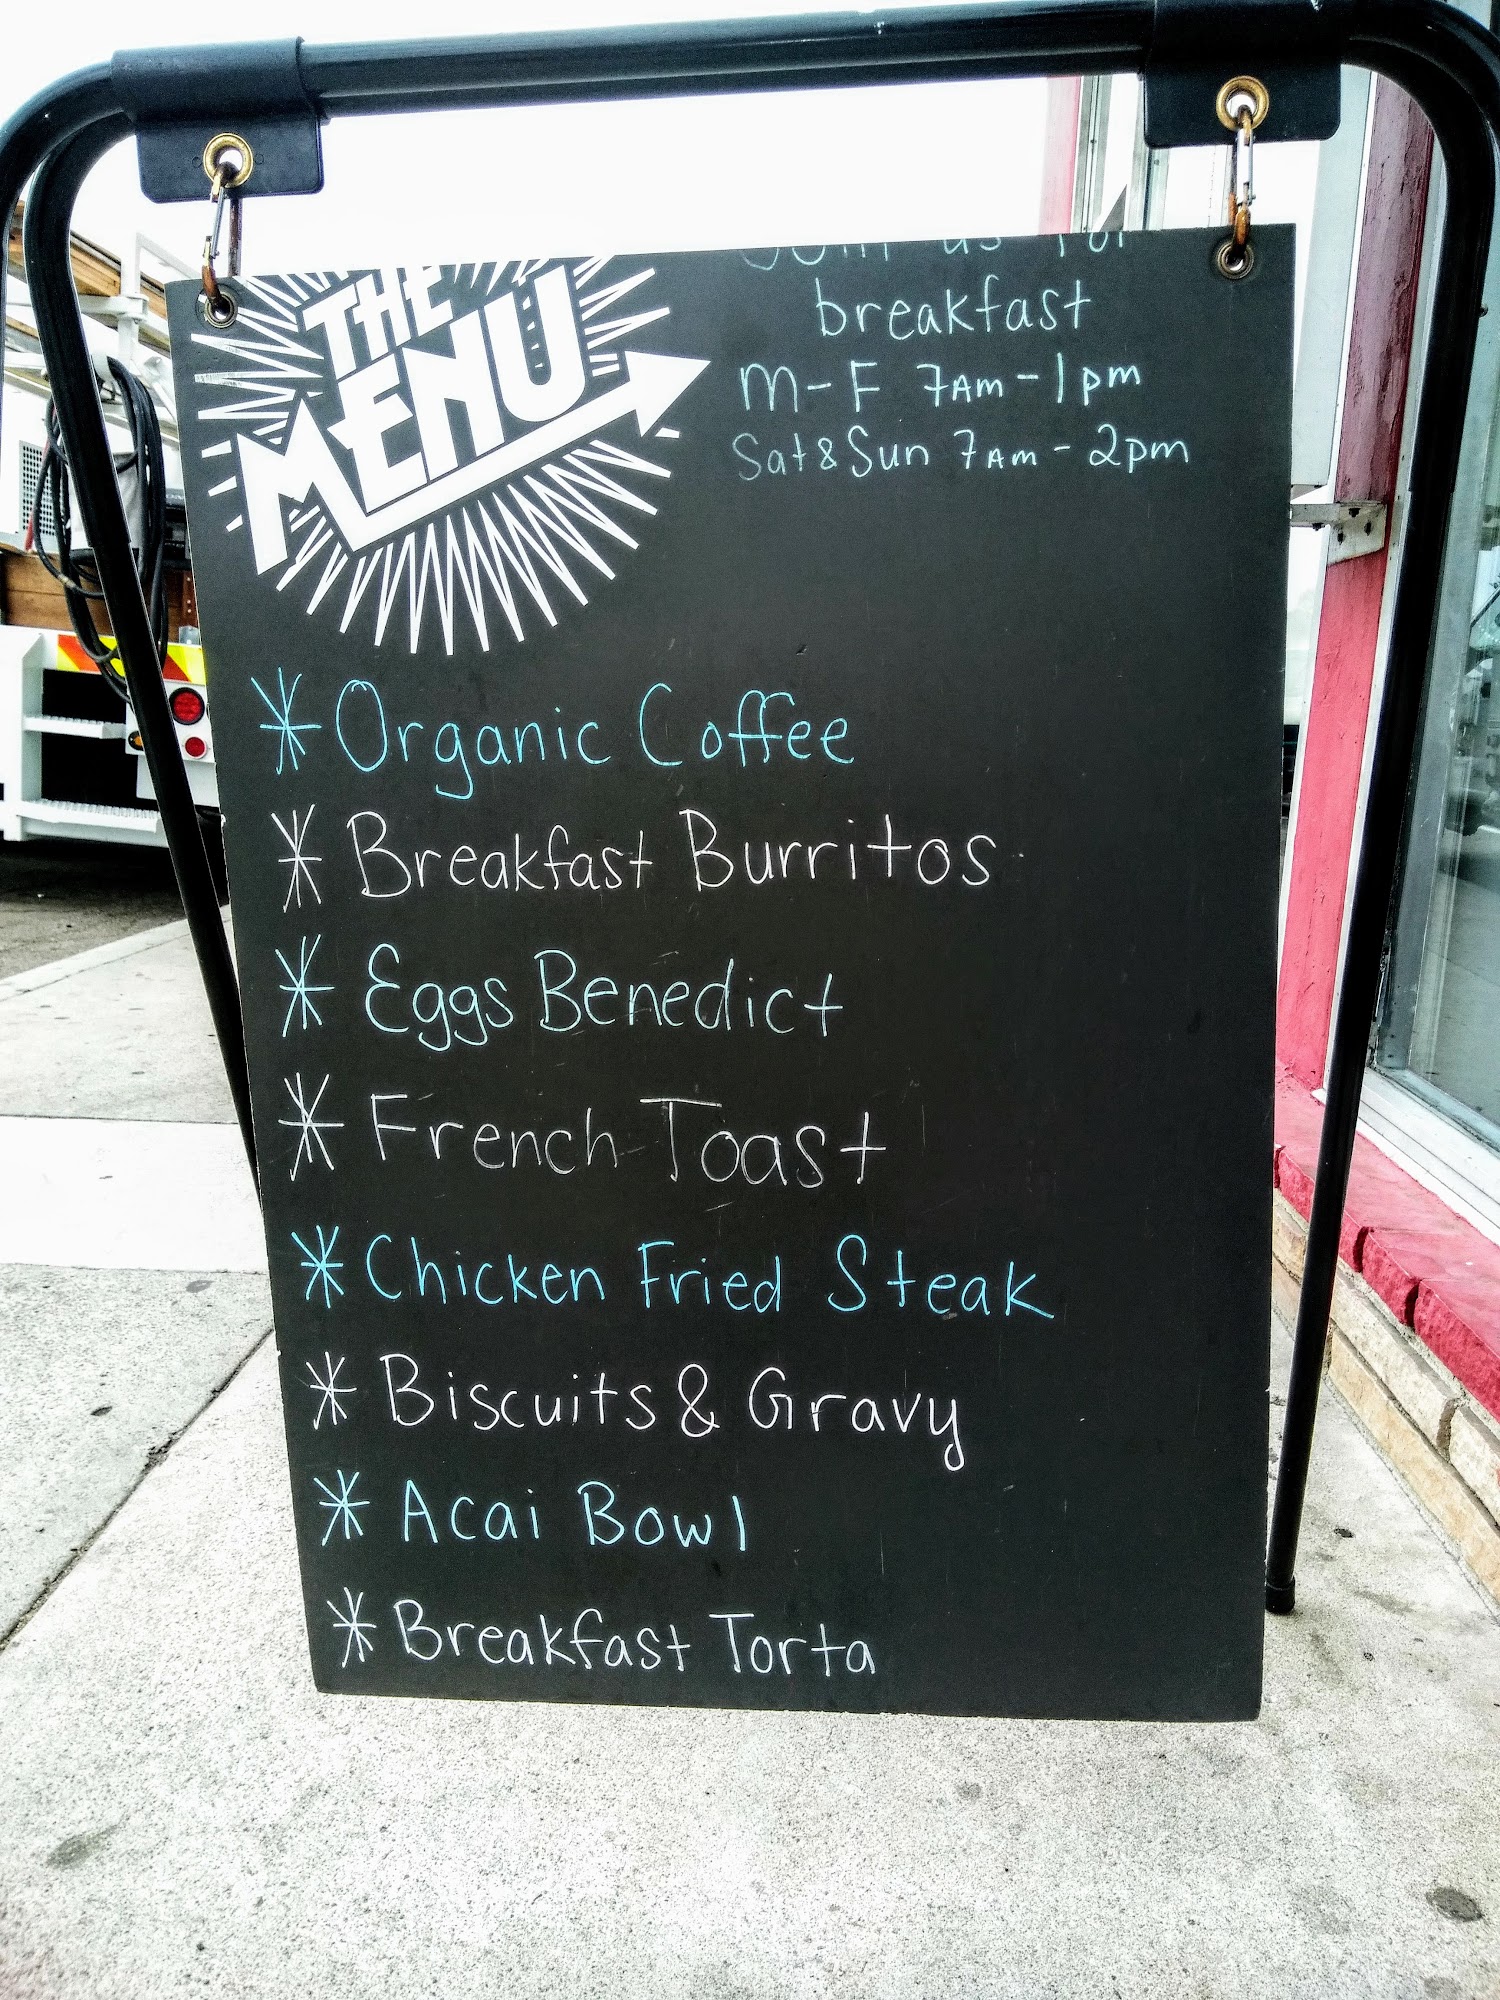 THE
MENU
Join us for
breakfast
M-F 7AM-1pm
Sat & Sun 7AM-2pm
* Organic Coffee
* Breakfast Burritos
* Eggs Benedict
* French Toast
* Chicken Fried Steak
* Biscuits & Gravy
* Acai Bowl
* Breakfast Torta